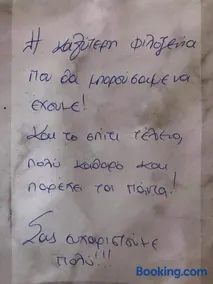 Η καλύτερη φιλοξενία
που θα μπορούσαμε να
έχουμε!
Και το σπίτι τέλειο,
πολύ καθαρό και
παρέχει τα πάντα!
Σας ευχαριστούμε
πολύ!!!
Booking.com